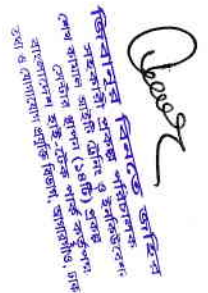 জিল্লুর বিনতে জামিল
সহকারী প্রকল্প পরিচালক
শেখ কামাল আইটি ট্রেনিং ও ইনকিউবেশন
সেন্টার স্থাপন (১৪টি) প্রকল্প
বাংলাদেশ হাই-টেক পার্ক কর্তৃপক্ষ
তথ্য ও যোগাযোগ প্রযুক্তি বিভাগ, আগারগাঁও, ঢাকা